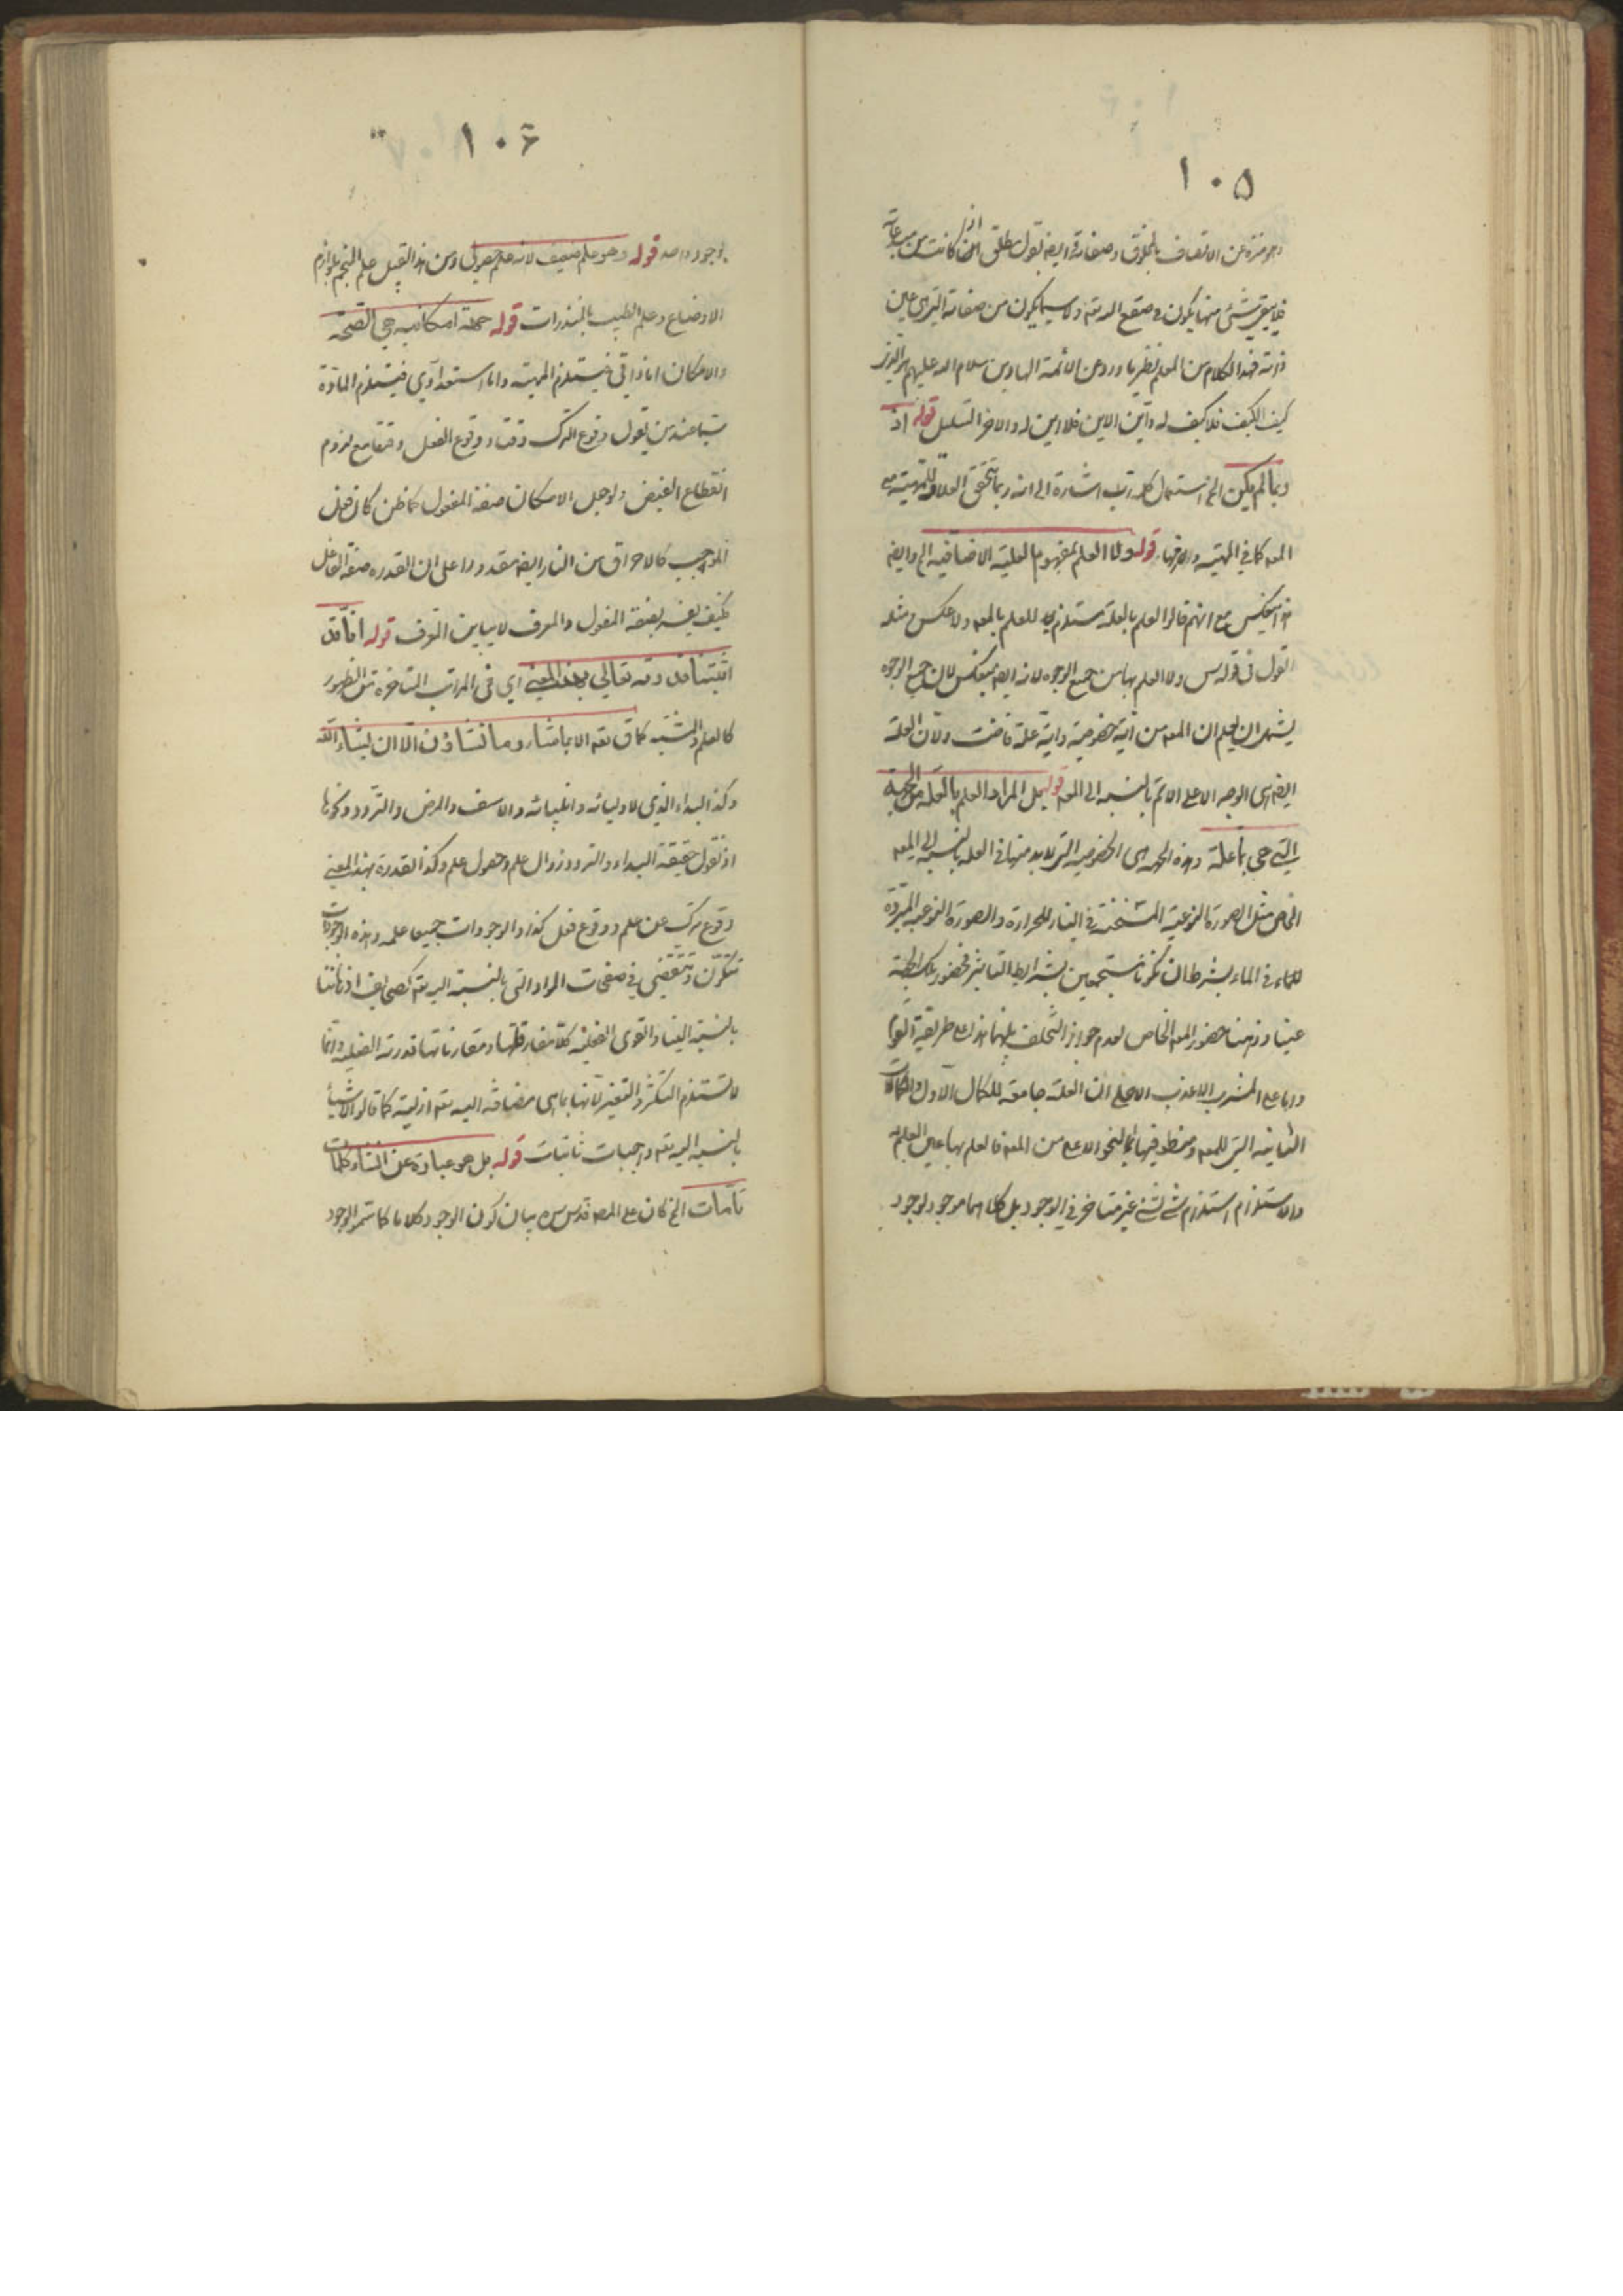 ۱۰۵
وهو منزه عن الاتصاف بالمخلوق وصفاته وايضا يقول مطلق اذا كانت من مبدعاته
فلا يبقى شئ منها يكون فى صقع الله تعه ولا سيما يكون من صفاته التى هى عين
ذاته فهذا الكلام من المعلم نظير ما ورد عن الائمة الهادين سلام الله عليهم
كيف الكيف فلا كيف له واين الاين فلا اين له والاخر التسلسل قوله اذ
ربما لم يكن الخ استعمال كلمة رب اشارة الى انه ربما يتحقق العلاقة اللزومية مع
المعه كما فى المهية ولازمها قوله ولا العلم بمفهوم العلية الاضافية الخ وايضا
هذا ينعكس مع انهم قالوا العلم بالعلة مستلزم للعلم بالمعه ولا عكس مثله
القول فى قوله س ولا العلم بها من جميع الوجوه لانه ايضا ينعكس لان جميع الوجوه
يشمل ان يعلم ان المعه من اية خصوصية واية علة فاضت ولان العلة
ايضا هى الوجه الاعلى الاتم بالنسبة الى المعه قوله بل المراد العلم بالعلة من الجهة
التى هى بها علة وهذه الجهة هى الخصوصية التى لا بد منها فى العلة بالنسبة الى المعه
الخاص مثل الصورة النوعية المسخنة فى النار للحرارة والصورة النوعية المبردة
للماء فى الماء بشرط ان تكونا مستجمعين بشرايط التاثير فحضور تلك الجهة
عينا وذهنا حضور المعه الخاص لعدم جواز التخلف بينهما هذا على طريقة القوم
واما على المشرب الاعذب الاحلى ان العلة جامعة للكمال الاول والكمالات
الثانية التى للمعه ومنطو فيها بالنحو الاعلى من المعه فالعلم بها عين العلم به
والاستلزام استلزام شئ لشئ غير متاخر فى الوجود بل كلاهما موجود لوجود
۱۰۶
بوجود واحد قوله وهو علم ضعيف لانه علم حصولى ومن هذا القبيل علم المنجم بلوازم
الاوضاع وعلم الطبيب بالمنذرات قوله جهة امكانية هى الصحة
والامكان اما ذاتى فيستلزم المهية واما استعدادى فيستلزم المادة
سيما عند من يقول وقوع الترك وقت ووقوع الفعل وقتا مع لزوم
انقطاع الفيض ولو جعل الامكان صفة المفعول كما ظن كان فعل
الموجب كالاحراق من النار ايضا مقدورا على ان القدرة صفة الفاعل
فكيف يفسر بصفة المفعول والمعرف لا يباين المعرف قوله انا قد
اثبتنا قدرته تعالى بهذا المعنى اى فى المراتب المتاخرة مثل الظهور
كالعلم والمشية كما ق تعه الا بما شاء وما تشاؤن الا ان يشاء الله
وكذا البداء الذى لاوليائه وانبيائه والاسف والمرض والتردد ونحوها
اذ نقول حقيقة البداء والتردد زوال علم وحصول علم وكذا القدرة بهذا المعنى
وقوع ترك عن علم ووقوع فعل كذا والوجودات جميعا علمه وهذه الوجودات
تتكون وتنقضى فى صفحات المواد التى بالنسبة اليه تعه كصحايف اذهاننا
بالنسبة الينا والقوى الفعلية كلا مفارقاتها ومقارناتها قدرته الفعلية وانما
لا تستلزم التكثر والتغير لانها بما هى مضافة اليه تعه ازلية كما قالوا الاشياء
بالنسبة اليه تعه واجبات ثابتات قوله بل هو عبارة عن انشاء كلمات
تامات الخ كان على المصه قدس سره بيان كون الوجود كلاما كما ستمر الوجود